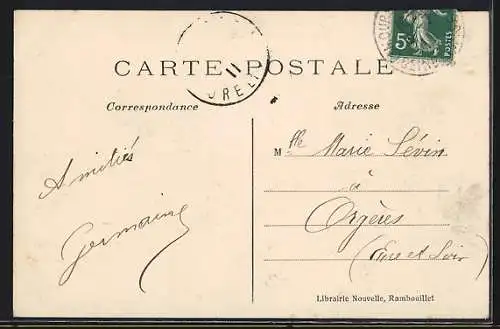 CARTE POSTALE
Correspondance
Adresse
5c
POSTES
11
Amitiés
Germaine
Mlle Marie Sévin
à
Orgères
(Eure et Loir)
Librairie Nouvelle, Rambouillet